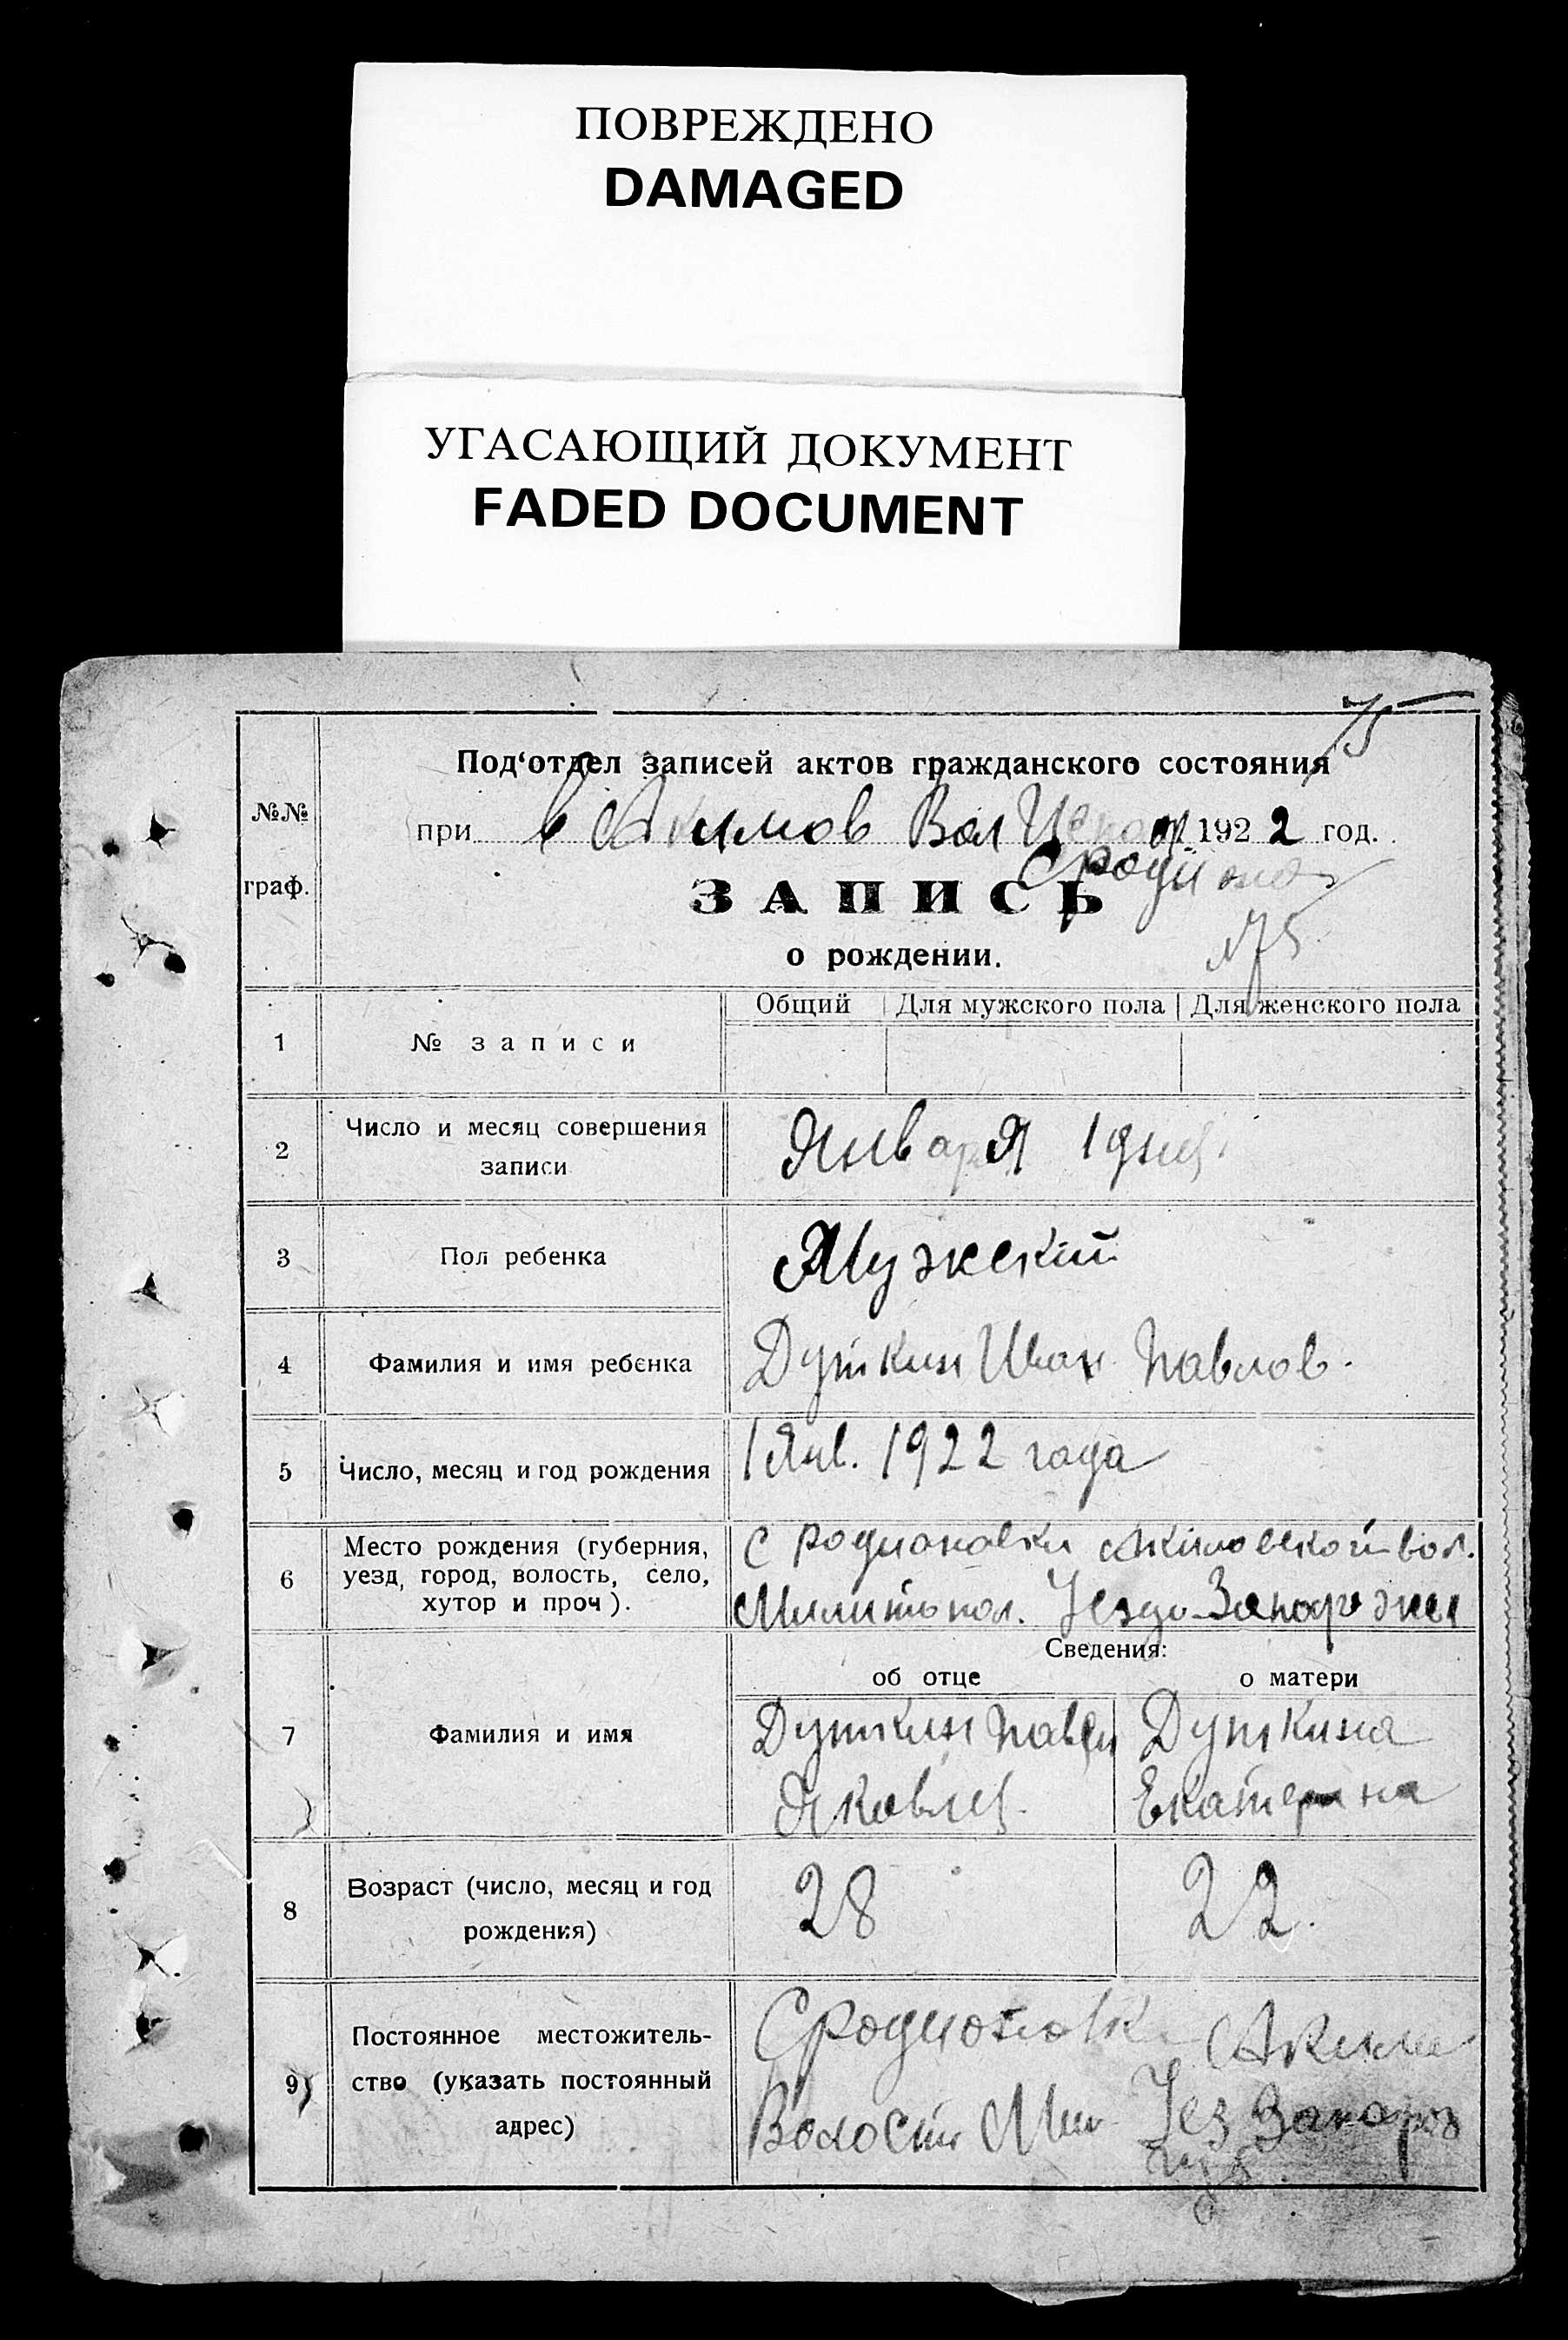 ПОВРЕЖДЕНО
DAMAGED
УГАСАЮЩИЙ ДОКУМЕНТ
FADED DOCUMENT
75
Под‘отдел записей актов гражданского состояния
№№
граф.
при в Акимов Вол Исполк 1922 год.
ЗАПИСЬ
о рождении.
№5
Общий Для мужского пола Для женского пола
1 № записи
2 Число и месяц совершения
записи
Января 1 дня
3 Пол ребенка Мужский
4 Фамилия и имя ребенка Дуткин Иван Павлов.
5 Число, месяц и год рождения 1 Янв. 1922 года
6 Место рождения (губерния,
уезд, город, волость, село,
хутор и проч).
С Родионовки Акимовской вол.
Милитопол. Уезда
Сведения:
об отце о матери
7 Фамилия и имя
Дуткин Павел
Яковлев
Дуткина
Екатерина
8 Возраст (число, месяц и год
рождения)
28 22.
9 Постоянное местожитель-
ство (указать постоянный
адрес)
С Родионовк Акимо
Волости Мил Уез Запорож
губ.